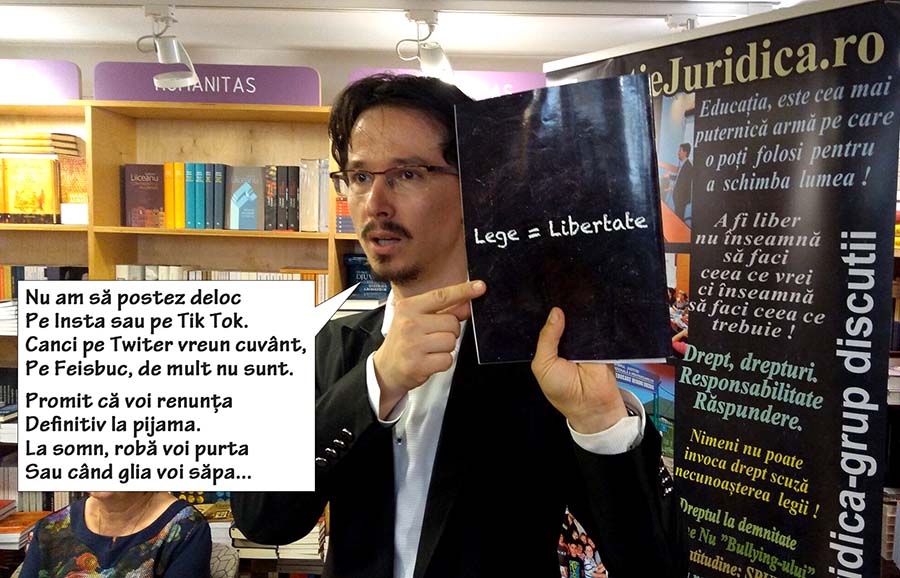 HUMANITAS
Liiceanu
Nu am să postez deloc
Pe Insta sau pe Tik Tok.
Canci pe Twiter vreun cuvânt,
Pe Feisbuc, de mult nu sunt.
Promit că voi renunţa
Definitiv la pijama.
La somn, robă voi purta
Sau când glia voi săpa...
Lege = Libertate
ieJuridica.ro
Educaţia, este cea mai
puternică armă pe care
o poţi folosi pentru
a schimba lumea !
A fi liber
nu înseamnă
să faci
ceea ce vrei
ci înseamnă
să faci ceea ce
trebuie !
Drept, drepturi.
Responsabilitate
Răspundere.
Nimeni nu poate
invoca drept scuză
necunoaşterea legii !
Dreptul la demnitate
Nu "Bullying-ului"
idica-grup discutii